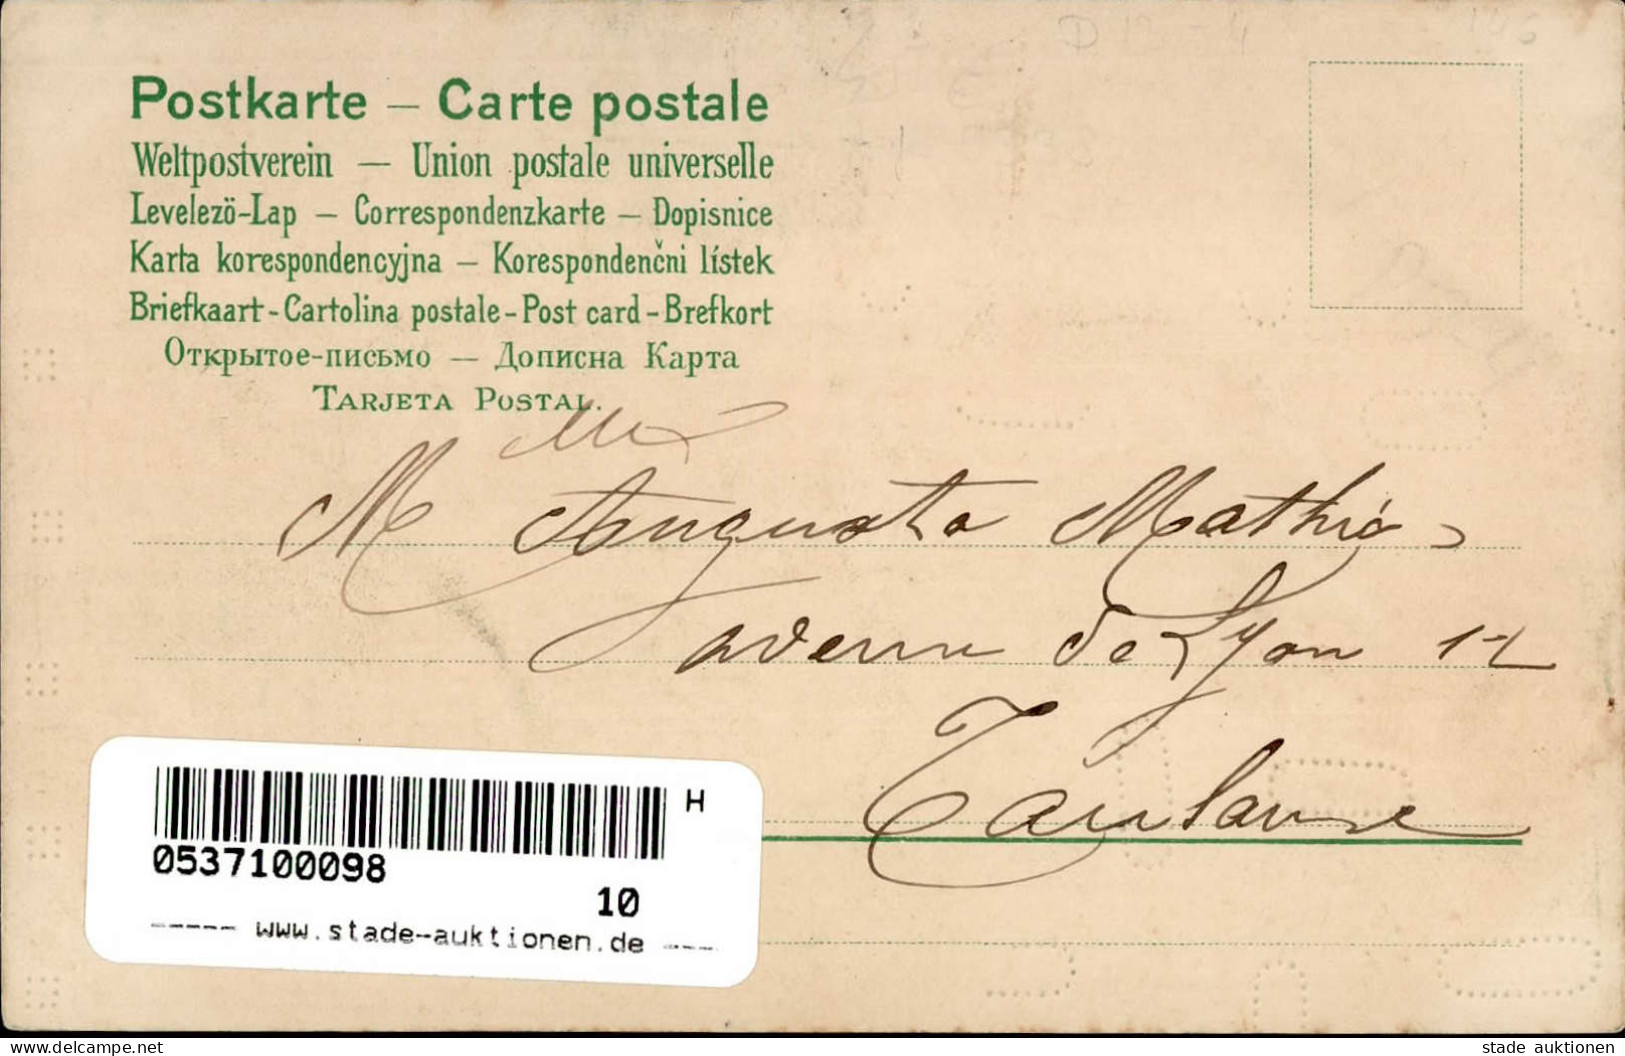 Postkarte — Carte postale
Weltpostverein — Union postale universelle
Levelezö-Lap — Correspondenzkarte — Dopisnice
Karta korespondencyjna — Korespondenčni lístek
Briefkaart - Cartolina postale - Post card - Brefkort
Открытое-письмо — Дописна Карта
TARJETA POSTAL.
M Augusta Mathió
avenu de Lyon 12
Toulouse
H
0537100098
10
----- www.stade-auktionen.de ----
www.delcampe.net
stade auktionen